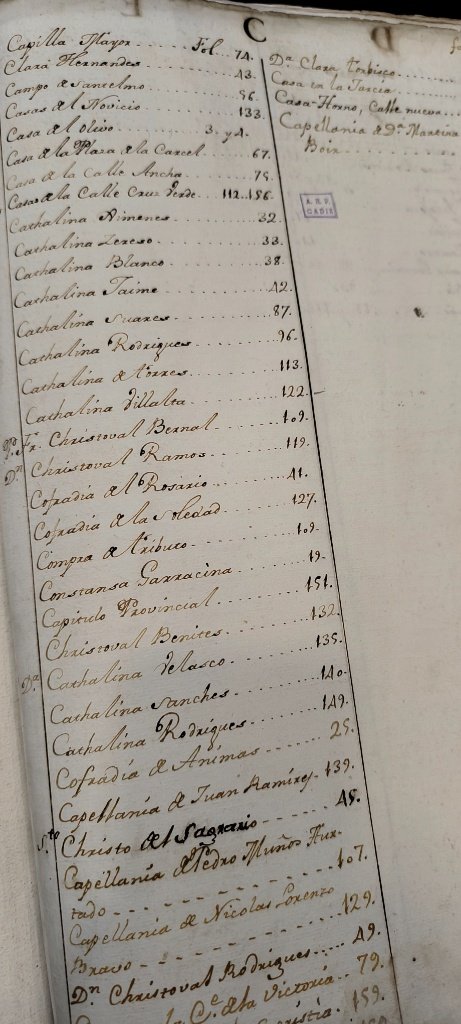 C
Capilla Mayor . . . Fol. 74.
Clara Hernandes . . . 43.
Campo de Santelmo . . . 56.
Casas del Novicio . . . 133.
Casa del olivo . . . 3. y 4.
Casa de la Plaza de la Carcel . . . 67.
Casa de la Calle Ancha . . . 75.
Casas de la Calle Cruz Verde . . . 112..156.
Cathalina Ximenes . . . 32.
Cathalina Zereso . . . 33.
Cathalina Blanco . . . 38.
Cathalina Jaime . . . 42.
Cathalina Suares . . . 87.
Cathalina Rodrigues . . . 96.
Cathalina de torres . . . 113.
Cathalina Villalta . . . 122.
Fr. Christoval Bernal . . . 109.
Dn. Christoval Ramos . . . 119.
Cofradia del Rosario . . . 41.
Cofradia de la Soledad . . . 127.
Compra de tributo . . . 109.
Constansa Garracina . . . 19.
Capitulo Provincial . . . 151.
Christoval Benites . . . 132.
Da. Cathalina Velasco . . . 135.
Cathalina Sanches . . . 140.
Cathalina Rodrigues . . . 149.
Cofradia de Animas . . . 25.
Capellania de Juan Ramires . . 139.
Sto. Christo del Sagrario . . . 45.
Capellania de Pedro Muños Hur-
tado . . . 107.
Capellania de Nicolas Lorenzo
Bravo . . . 129.
Dn. Christoval Rodrigues . . . 49.
la Ce. de la Victoria . . 79.
159.
Da. Clara
Casa en la Jarcia
Casa-Horno, Calle nueva
Capellania de Da. Martina
Boix
A.H.P.
CADIZ